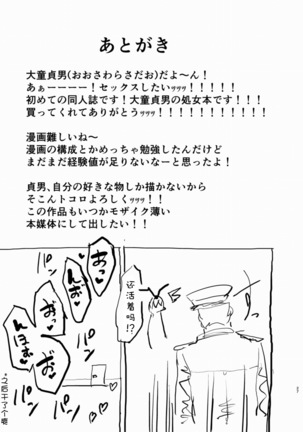 あとがき
大童貞男(おおさわらさだお)だよ〜ん!
あぁーーーー!セックスしたいｯｯｯ!!!!!
初めての同人誌です!大童貞男の処女本です!!!
買ってくれてありがとうｯｯｯ!!!!!!!!!!!
漫画難しいね〜
漫画の構成とかめっちゃ勉強したんだけど
まだまだ経験値が足りないなーと思ったよ!
貞男、自分の好きな物しか描かないから
そこんトコロよろしくｯｯｯ!!
この作品もいつかモザイク薄い
本媒体にして出したい!!
还活着吗!?
あっ♡
んお♡
おっ♡
んほぉ♡
パン
パン
パン
パン